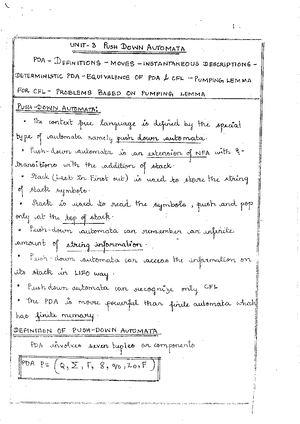 UNIT-3 PUSH DOWN AUTOMATA
PDA - DEFINITIONS - MOVES - INSTANTANEOUS DESCRIPTIONS -
DETERMINISTIC PDA - EQUIVALENCE OF PDA & CFL - PUMPING LEMMA
FOR CFL - PROBLEMS BASED ON PUMPING LEMMA
PUSH-DOWN AUTOMATA:
• The context free language is defined by the special
type of automata namely push down automata.
• Push-down automata is an extension of NFA with ε-
transitions with the addition of stack.
• Stack (Last In First out) is used to store the string
of stack symbols.
• Stack is used to read the symbols, push and pop
only at the top of stack.
• Push-down automata can remember an infinite
amount of string information.
• Push-down automata can access the information on
its stack in LIFO way.
• Push down automata can recognize only CFL
• The PDA is more powerful than finite automata which
has finite memory.
DEFINITION OF PUSH-DOWN AUTOMATA
PDA involves seven tuples or components
PDA P = (Q, Σ, Γ, δ, q0, z0, F)